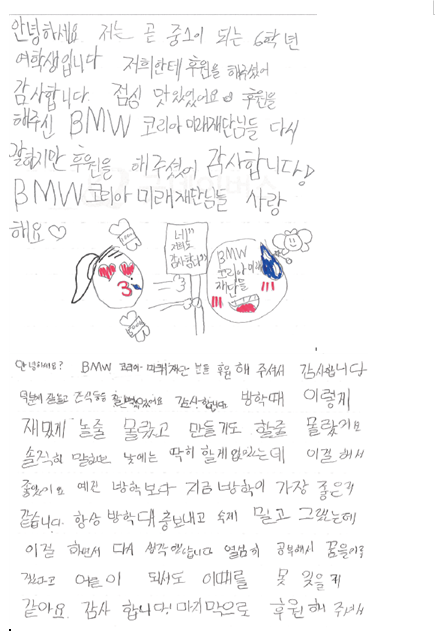 안녕하세요 저는 곧 중1이 되는 6학년
여학생입니다 저희한테 후원을 해주셨어
감사합니다. 점심 맛있었어요 후원을
해주신 BMW 코리아 미래재단님들 다시
말하지만 후원을 해주셨어 감사합니다!
BMW코리아 미래재단님들 사랑
해요♡
네!!
저희도
감사합니다
BMW
코리아 미래
재단들
안녕하세요? BMW 코리아 미래재단 분들 후원 해 주셔서 감사합니다
덕분에 잘놀고 간식들을 잘먹었어요 감사합니다 방학때 이렇게
재밌게 놀줄 몰랐고 만들기도 할줄 몰랐거요
솔직히 말하면 낮에는 딱히 할게없었는데 이걸 해서
좋았어요 예전 방학보다 지금 방학이 가장 좋은거
같습니다. 항상 방학 대충보내고 숙제 밀고 그랬는데
이걸 하면서 다시 생각했습니다 열심히 공부해서 꿈을이루
겠다고 어른이 되서도 이때를 못 잊을게
같아요. 감사 합니다! 마지막으로 후원해 주셔서